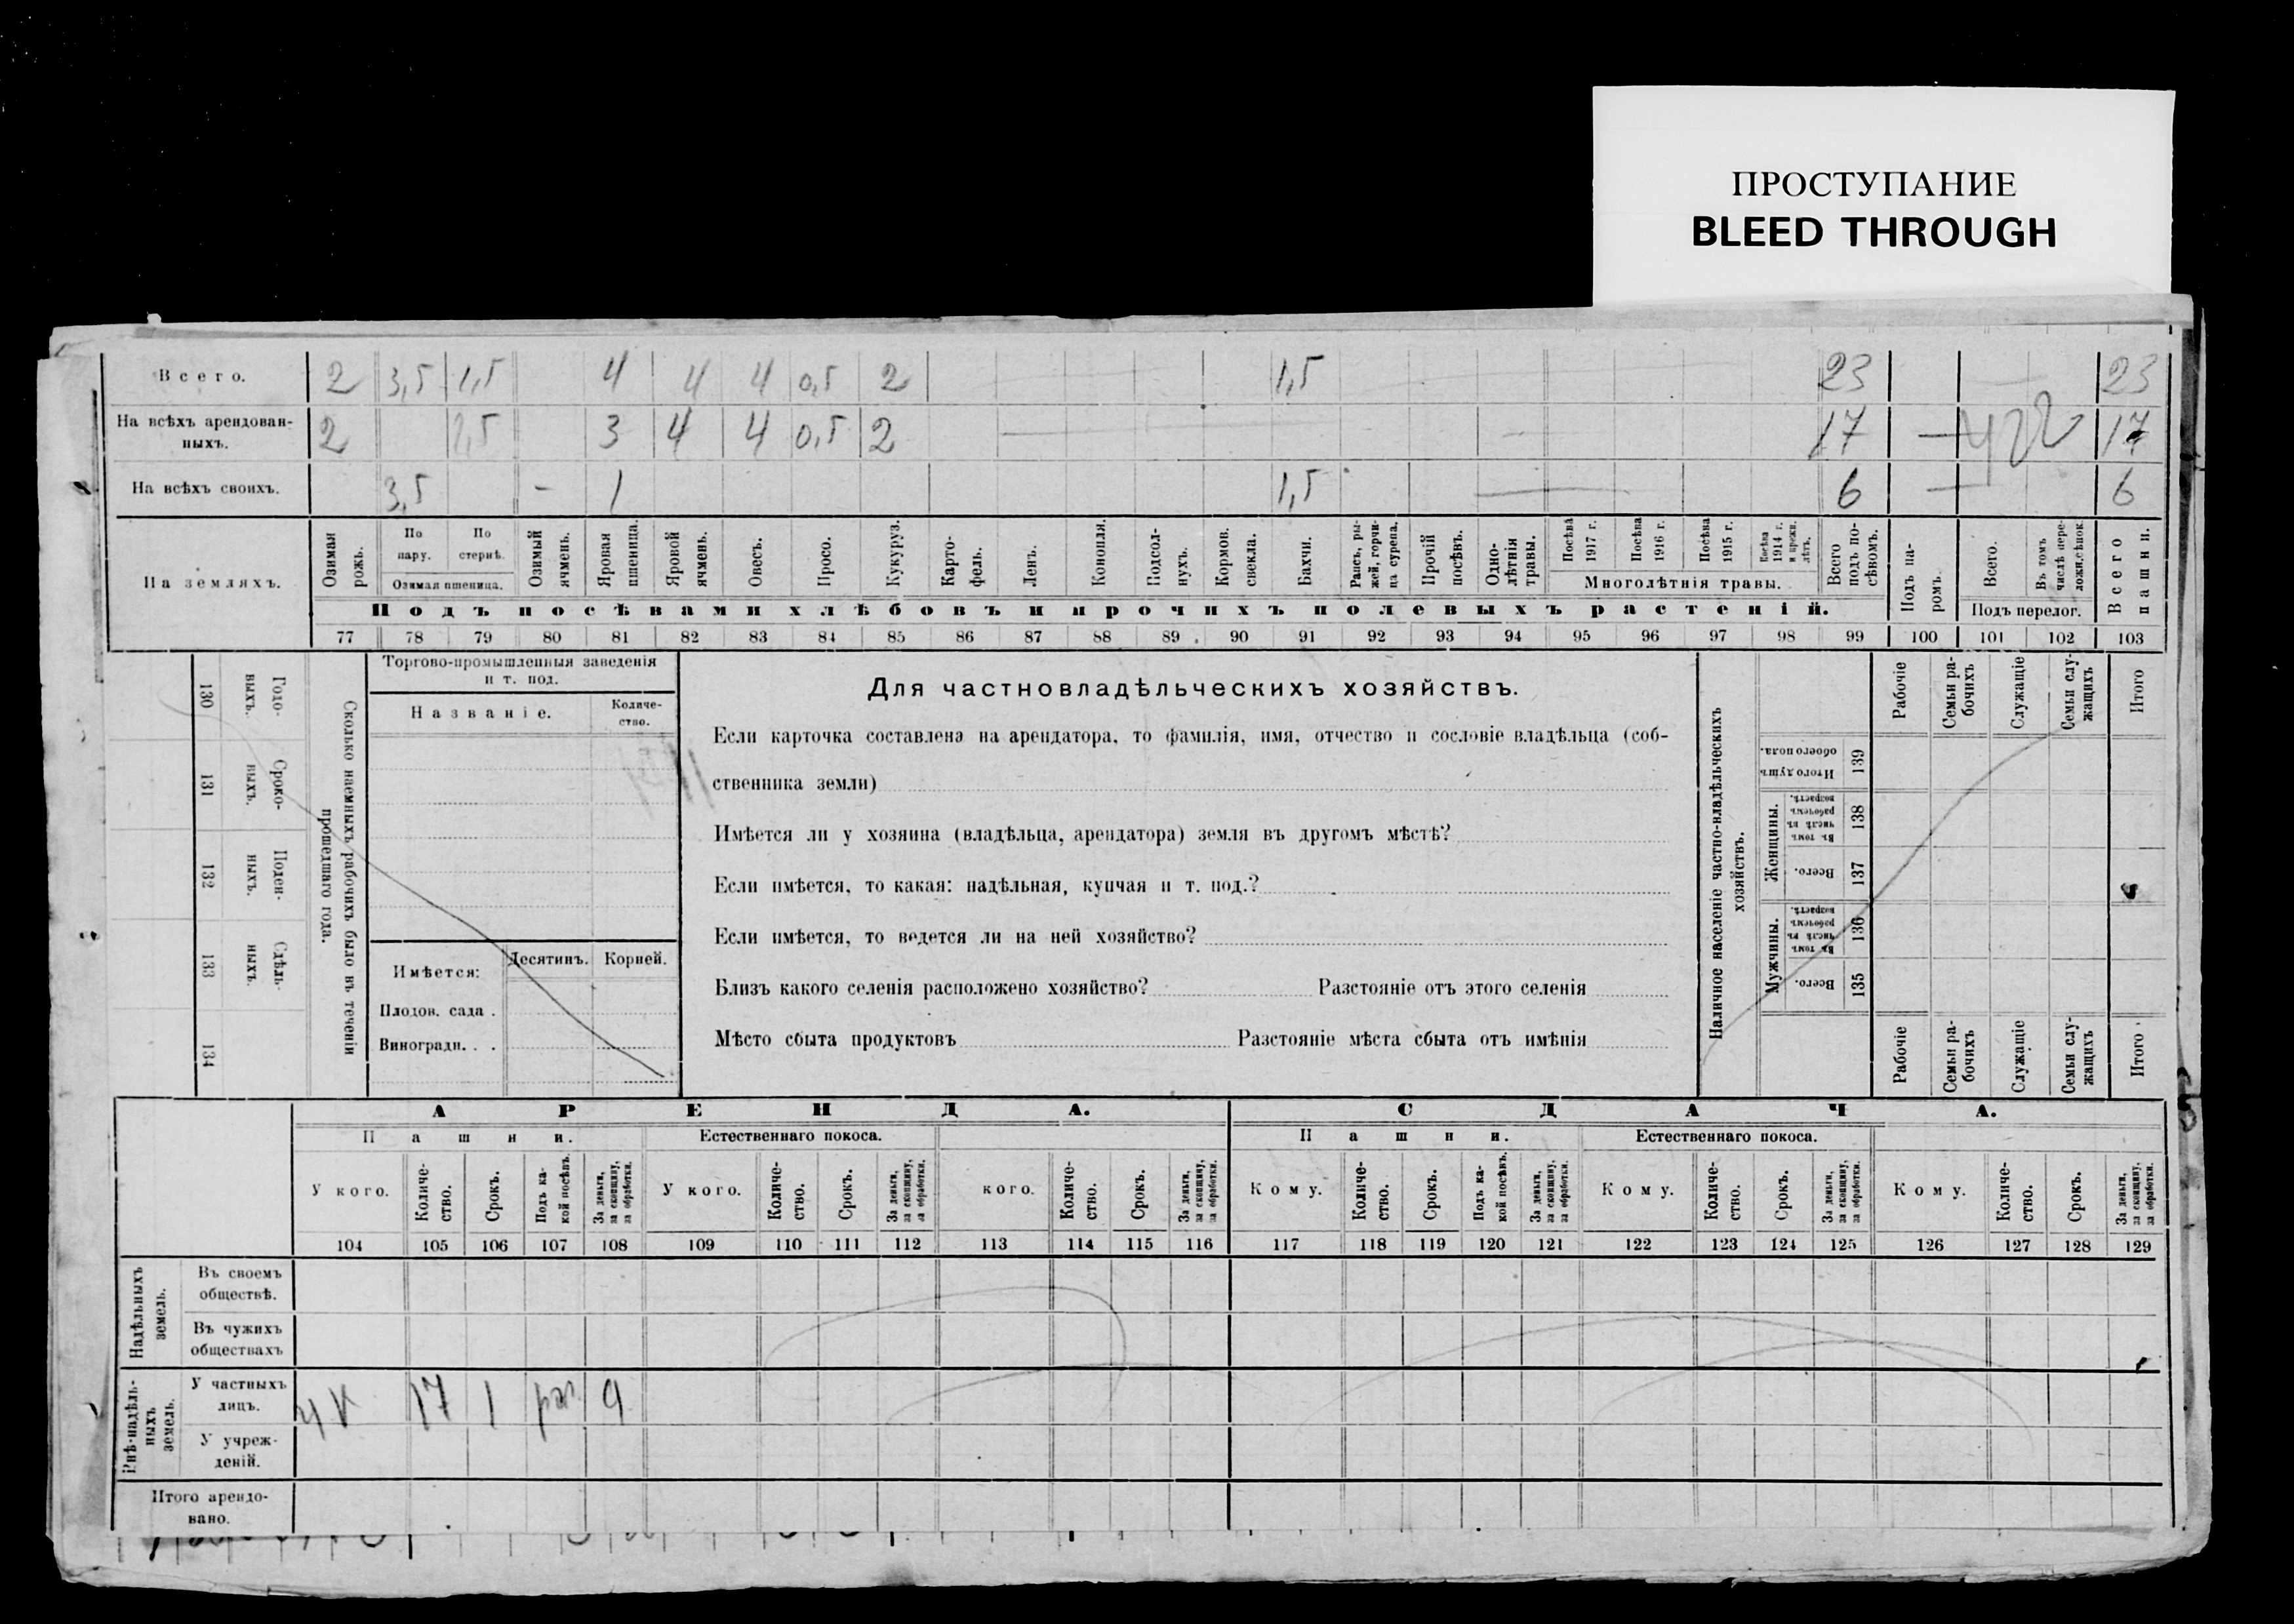 ПРОСТУПАНИЕ
BLEED THROUGH
Всего. 2 3,5 1,5 4 4 4 0,5 2 1,5 23 23
На всѣхъ арендован-
ныхъ. 2 1,5 3 4 4 0,5 2 17 — 17
На всѣхъ своихъ. 3,5 - 1 1,5 — 6 — 6
На земляхъ.
Озимая рожь.
По пару.
По стернѣ.
Озимая пшеница.
Озимый ячмень.
Яровая пшеница.
Яровой ячмень.
Овесъ.
Просо.
Кукуруз.
Карто-
фель.
Ленъ.
Конопля.
Подсол-
нухъ.
Кормов. свекла.
Бахчи.
Рапсъ, ры-
жей, горчи-
ца сурепа.
Прочій посѣвъ.
Одно-
лѣтнія травы.
Посѣва 1917 г.
Посѣва 1916 г.
Посѣва 1915 г.
Посѣва 1914 г. и прежн. лѣтъ.
Многолѣтнія травы.
Всего подъ по-
сѣвомъ.
Подъ посѣвами хлѣбовъ и прочихъ полевыхъ растеній.
Подъ па-
ромъ.
Всего.
Въ томъ числѣ пере-
Подъ перелог.
Всего пашни.
77 78 79 80 81 82 83 84 85 86 87 88 89 90 91 92 93 94 95 96 97 98 99 100 101 102 103
130 Годо-
выхъ.
131 Сроко-
выхъ.
132 Поден-
ныхъ.
133 Сдѣль-
ныхъ.
134
Сколько наемныхъ рабочихъ было въ теченіи
прошедшаго года.
Торгово-промышленныя заведенія
и т. под.
Названіе.
Количе-
ство.
Имѣется:
Десятинъ. Корней.
Плодов. сада .
Виноградн. . .
Для частновладѣльческихъ хозяйствъ.
Если карточка составлена на арендатора, то фамилія, имя, отчество и сословіе владѣльца (соб-
ственника земли)
Имѣется ли у хозяина (владѣльца, арендатора) земля въ другомъ мѣстѣ?
Если имѣется, то какая: надѣльная, купчая и т. под.?
Если имѣется, то ведется ли на ней хозяйство?
Близъ какого селенія расположено хозяйство? Разстояніе отъ этого селенія
Мѣсто сбыта продуктовъ Разстояніе мѣста сбыта отъ имѣнія
Наличное населеніе частно-владѣльческихъ
хозяйствъ.
Рабочіе
Семьи ра-
бочихъ
Служащіе
Семьи слу-
жащихъ
Итого
Итого душъ обоего пола. 139
Женщины.
Въ томъ числѣ въ рабочемъ возрастѣ. 138
Всего. 137
Мужчины.
Въ томъ числѣ въ рабочемъ возрастѣ. 136
Всего. 135
Рабочіе
Семьи ра-
бочихъ
Служащіе
Семьи слу-
жащихъ
Итого
АРЕНДА. СДАЧА.
Пашни. Естественнаго покоса. Пашни. Естественнаго покоса.
У кого. Количе-
ство. Срокъ. Подъ ка-
кой посѣвъ. За деньги, за скопщину, за обработки.
У кого. Количе-
ство. Срокъ. За деньги, за скопщину, за обработки.
кого. Количе-
ство. Срокъ. За деньги, за скопщину, за обработки.
Кому. Количе-
ство. Срокъ. Подъ ка-
кой посѣвъ. За деньги, за скопщину, за обработки.
Кому. Количе-
ство. Срокъ. За деньги, за скопщину, за обработки.
Кому. Количе-
ство. Срокъ. За деньги, за скопщину, за обработки.
104 105 106 107 108 109 110 111 112 113 114 115 116 117 118 119 120 121 122 123 124 125 126 127 128 129
Надѣльныхъ
земель.
Въ своемъ
обществѣ.
Въ чужихъ
обществахъ
Внѣ-надѣль-
ныхъ
земель.
У частныхъ
лицъ. 17 1
У учреж-
деній.
Итого арендо-
вано.